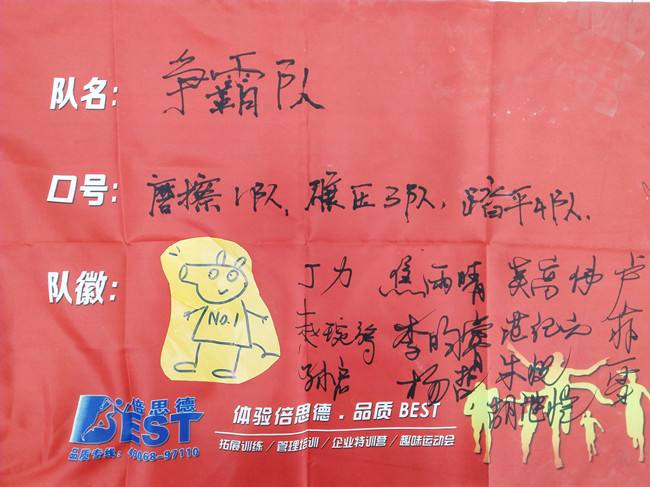 队名: 争霸队
口号: 磨擦1队, 碾压3队, 踏平4队.
队徽:
No.1
丁力 焦雨晴 卢
赵琬琦 李昀 范纪元 菲
孙启 杨哲 朱悦
胡旭
倍思德
BEST
品质专线: 40068-97110
体验倍思德.品质BEST
拓展训练/管理培训/企业特训营/趣味运动会